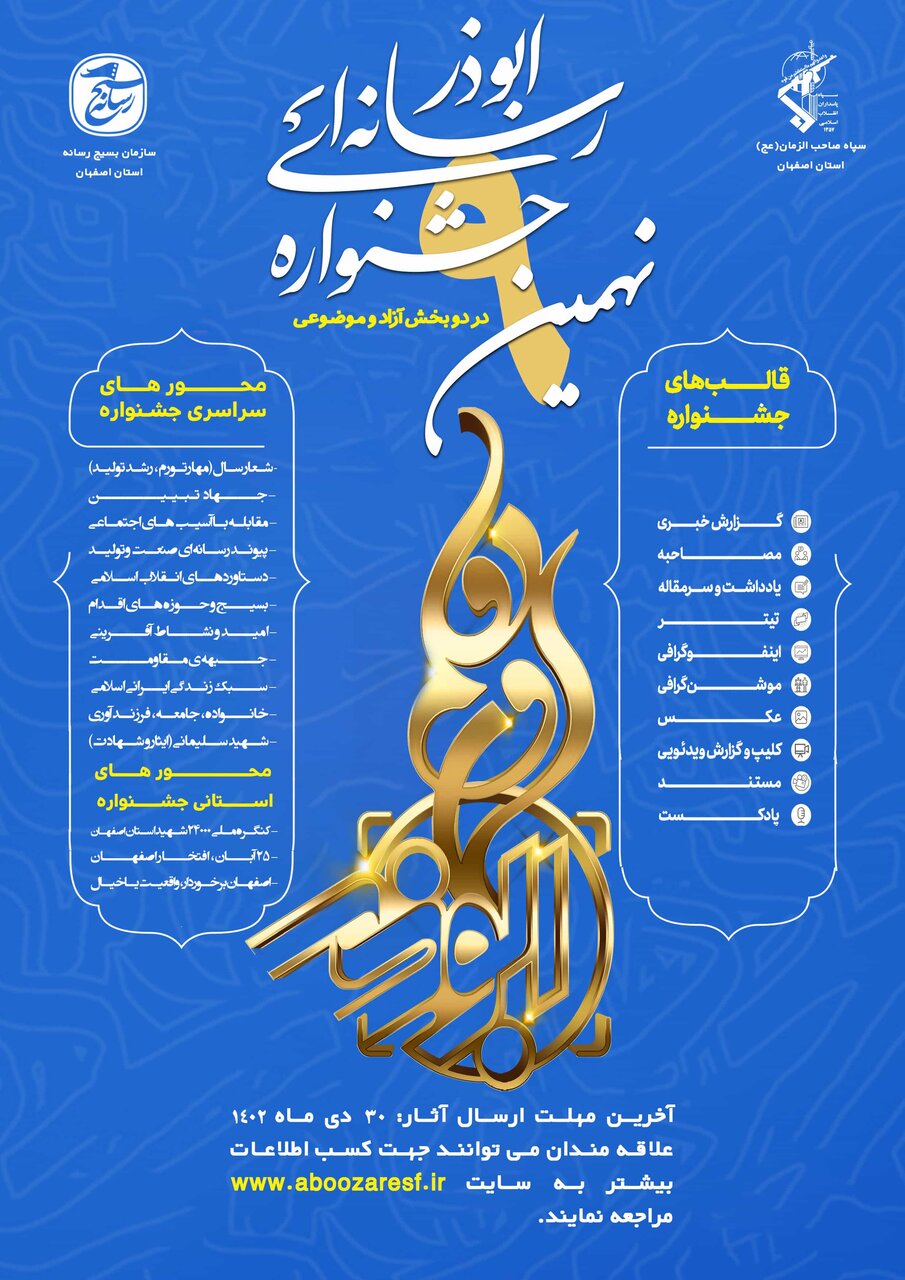 سپاه
پاسداران
انقلاب
اسلامی
۱۳۵۷
سپاه صاحب الزمان(عج)
استان اصفهان
رسانه
بسیج
سازمان بسیج رسانه
استان اصفهان
نهمین
جشنواره
رسانه ای
ابوذر
۹
در دو بخش آزاد و موضوعی
قالب‌های
جشنواره
گزارش خبری
مصاحبه
یادداشت و سرمقاله
تیتر
اینفوگرافی
موشن‌گرافی
عکس
کلیپ و گزارش ویدئویی
مستند
پادکست
محور های
سراسری جشنواره
- شعار سال (مهار تورم، رشد تولید)
- جهاد تبیین
- مقابله با آسیب های اجتماعی
- پیوند رسانه ای صنعت و تولید
- دستاوردهای انقلاب اسلامی
- بسیج و حوزه های اقدام
- امید و نشاط آفرینی
- جبهه ی مقاومت
- سبک زندگی ایرانی اسلامی
- خانواده، جامعه، فرزندآوری
- شهید سلیمانی (ایثار و شهادت)
محور های
استانی جشنواره
- کنگره ملی ۲۴۰۰۰ شهید استان اصفهان
- ۲۵ آبان، افتخار اصفهان
- اصفهان برخوردار، واقعیت یا خیال
آخرین مهلت ارسال آثار: ۳۰ دی ماه ۱۴۰۲
علاقه مندان می توانند جهت کسب اطلاعات
بیشتر به سایت www.aboozaresf.ir
مراجعه نمایند.